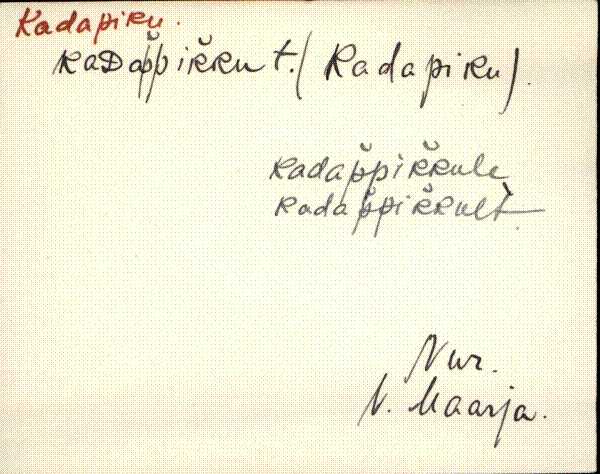 Kadapiku.
kaDap̆pik̆ku t. (Kadapiku).
kadap̆pik̆kule
kadap̆pik̆kult̀
Nur.
N. Maarja.